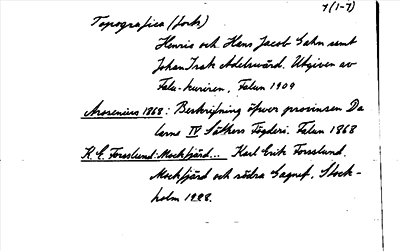 4(1-7)
Topografica (forts)
Henric och Hans Jacob Gahn samt
Johan Isak Adelswärd. Utgiven av
Falu-kuriren, Falun 1909
Arosenius 1868: Beskrifning öfver provinsen Da
larne IV Säthers Fögderi. Falun 1868
K. E. Forsslund: Mockfjärd... Karl Erik Forsslund.
Mockfjärd och södra Gagnef. Stock-
holm 1928.